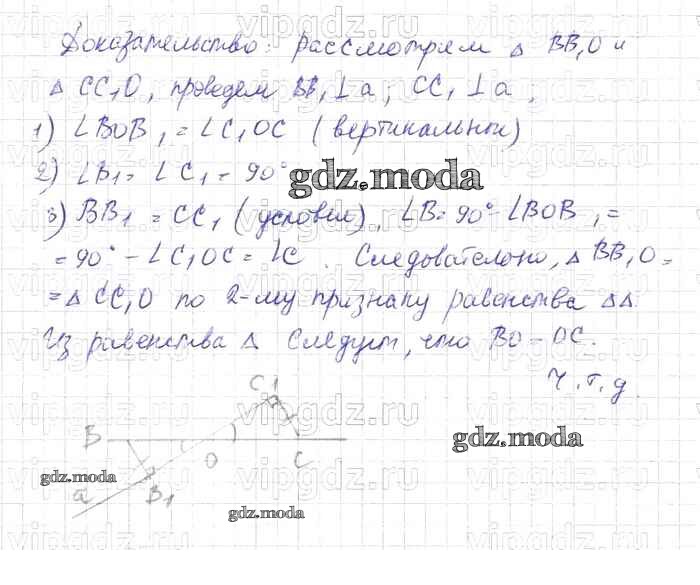 Доказательство: рассмотрем Δ BB₁O и
Δ CC₁O, проведем BB₁⊥a, CC₁⊥a,
1) ∠BOB₁ = ∠C₁OC (вертикальные)
2) ∠B₁ = ∠C₁ = 90°
3) BB₁ = CC₁ (условия), ∠B = 90° - ∠BOB₁ =
= 90° - ∠C₁OC = ∠C. Следовательно, Δ BB₁O =
= Δ CC₁O по 2-му признаку равенства ΔΔ.
Из равенства Δ следует, что BO = OC.
Ч.т.д.
C1
B
O
C
a
B₁
gdz.moda
gdz.moda
gdz.moda
gdz.moda
vipgdz.ru